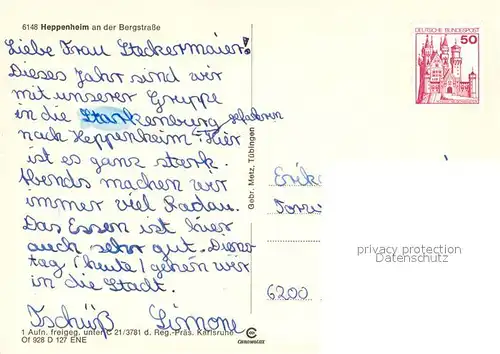 6148 Heppenheim an der Bergstraße
Liebe Frau Steckermaier!
Dieses Jahr sind wir
mit unserer Gruppe
in die Starkenburg gefahren
nach Heppenheim. Hier
ist es ganz stark.
Abends machen wir
immer viel Radau.
Das Essen ist hier
auch sehr gut. Diens
tag (heute) gehen wir
in die Stadt.
Tschüß Simone
1 Aufn. freigeg. unter C 21/3781 d. Reg.-Präs. Karlsruhe
Of 928 D 127 ENE
Gebr. Metz, Tübingen
DEUTSCHE BUNDESPOST
50
Erika
6200
privacy protection
Datenschutz